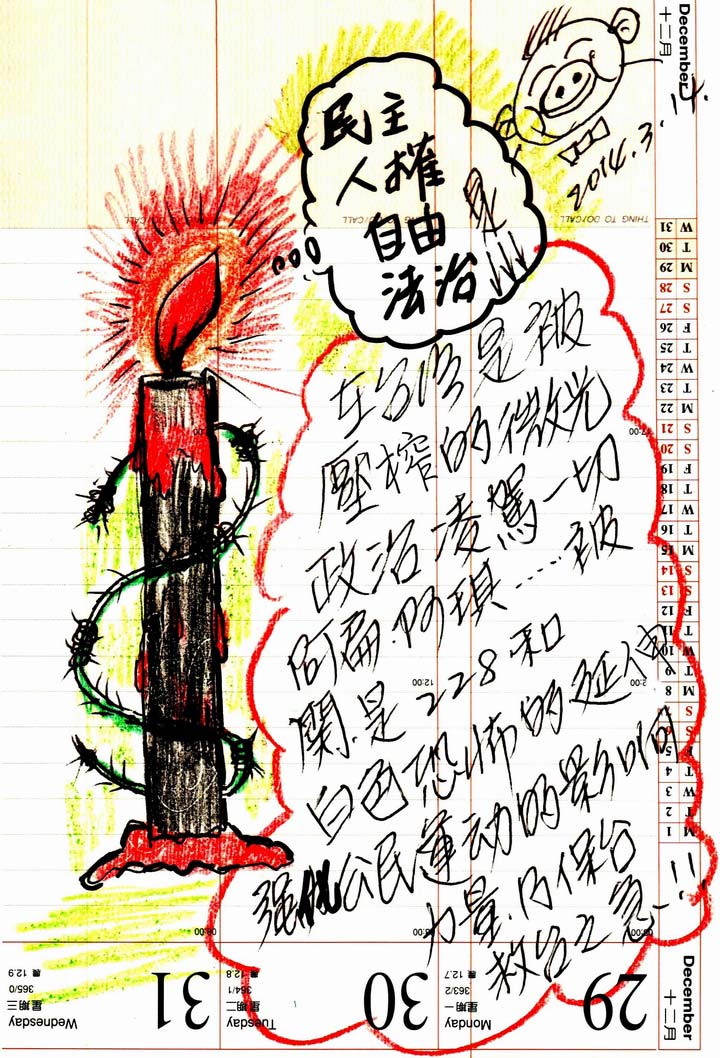 民主
人權
自由 是
法治
2014.3.
在台灣是被
壓榨的微光
政治凌駕一切
阿扁阿琪……被
關.是228和
白色恐怖的延伸
強化公民運动的影响
力量.乃保台
救台之急.!!
December
十二月
THING TO DO/CALL
W 31
T 30
M 29
S 28
S 27
F 26
T 25
W 24
T 23
M 22
S 21
S 20
F 19
T 18
W 17
T 16
M 15
S 14
S 13
F 12
T 11
W 10
T 9
M 8
S
S
F 5
T 4
W 3
T 2
M 1
12:00
2:00
29
30
31
Monday
星期一
363/2
農 12.7
Tuesday
星期二
364/1
農 12.8
Wednesday
星期三
365/0
農 12.9
December
十二月